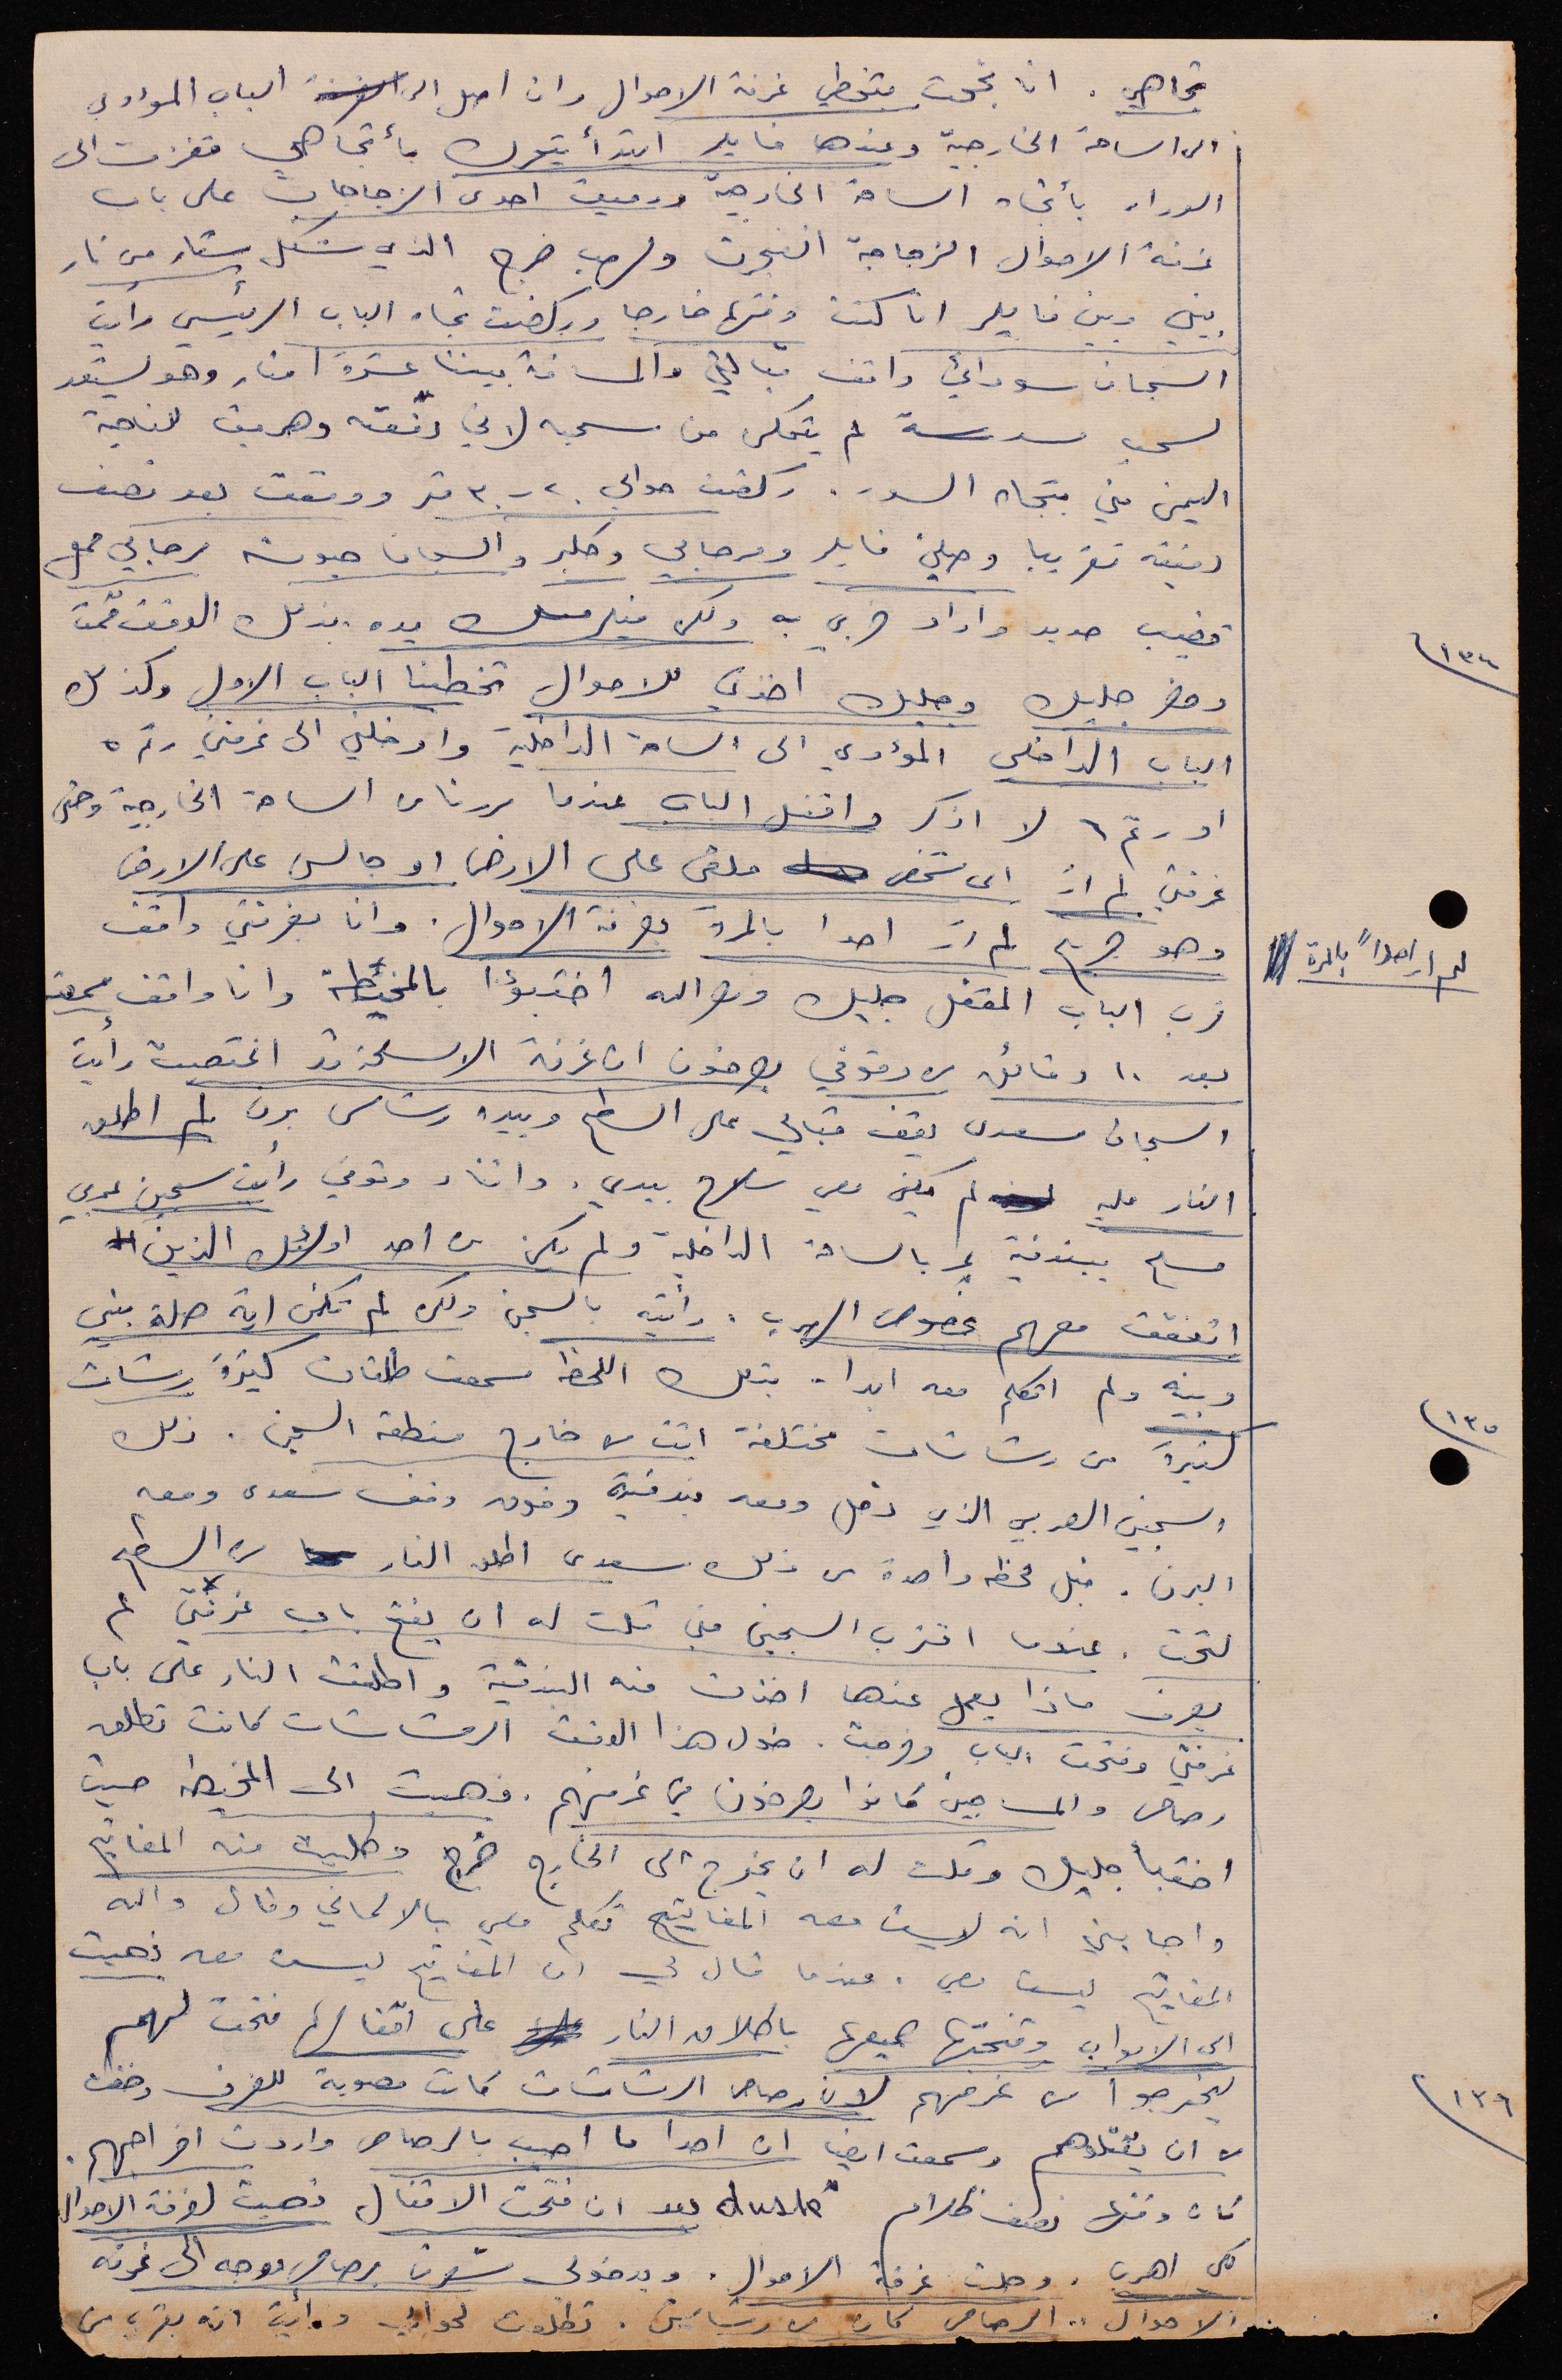 تجاهي . انا نجحت بتخطي غرفة الاحوال وان اصل الى الباب المؤدي
الى الساحة الخارجية وعندها فايلر ابتدأ يتحرك بأتجاهي قفزت الى
الوراء بأتجاه الساحة الخارجية ورميت احدى الزجاجات على باب
غرفة الاحوال الزجاجة انفجرت ولهب خرج الذي شكل ستار من نار
بيني وبين فايلر انا كنت وقتها خارجا وركضت تجاه الباب الرئيسي رأيت
السجان سوداني واقف قبالتي والمسافة بيننا عشرة امتار وهو يستعد
لسحب مسدسه لم يتمكن من سحبه لاني دفعته وهربت للناحية
اليمنى مني بتجاه السور . ركضت حوالي ٢٠ - ٣٠ متر ووقعت بعد نصف
دقيقة تقريبا وصلني فايلر ومرجاني وحلبر والسجان حبوشه مرجاني معه
قضيب حديد واراد ضربي به ولكن فيلر مسك يده بذلك الوقت قمت
وحضر جليك وجليك اخذني للاحوال تخطينا الباب الاول وكذلك
الباب الداخلي المؤدي الى الساحة الداخلية وادخلني الى غرفتي رقم ٥
او رقم ٦ لا اذكر واقفل الباب عندما مررنا من الساحة الخارجية وحتى
غرفتي لم ار اي شخص ملقى على الارض او جالس على الارض
وهو جريح لم ار احدا بالمرة بغرفة الاحوال . وانا بغرفتي واقف
لم ار احداً بالمرة
قرب الباب المقفل جليك ونصرالله اختبؤا بالمخيطة وانا واقف سمعت
بعد ١٠ دقائق من وقوفي يصرخون ان غرفة الاسلحة قد اغتصبت رأيت
السجان مسعدى يقف قبالي على السطح وبيده رشاش برن لم اطلق
النار عليه لم يكن معي سلاح بيدي . واثناء وقوفي رأيت سجين عربي
مسلح ببندقية يمر بالساحة الداخلية ولم يكن من احد اولئك الذين
اتفقت معهم بخصوص الهرب . رأيته بالسجن ولكن لم تكن اية صلة بيني
وبينه ولم اتكلم معه ابدا . بتلك اللحظة سمعت طلقات كثيرة رشات
١٣٤
١٣٥
كثيرة من رشاشات مختلفة اتت من خارج منطقة السجن . ذلك
السجين العربي الذي دخل ومعه بندقية وفوق وقف سعدى ومعه
البرن . قبل لحظة واحدة من ذلك سعدى اطلق النار من السطح
لتحت . عندما اقترب السجين مني قلت له ان يفتح باب غرفتي لم
يعرف ماذا يعمل عندها اخذت منه البندقية واطلقت النار على باب
غرفتي وفتحت الباب وخرجت . خلال هذا الوقت الرشاشات كانت تطلق
رصاص والمساجين كانوا يصرخون من غرفهم . فذهبت الى المخيطة حيث
اختبأ جليك وقلت له ان يخرج الى الخارج خرج وطلبت منه المفاتيح
واجابني انه ليست معه المفاتيح تكلم معي بالالماني وقال والله
المفاتيح ليست معي . عندما قال لي ان المفاتيح ليست معه ذهبت
الى الابواب وفتحتها جميعها باطلاق النار على اقفالها فتحت لهم
ليخرجوا من غرفهم لان رصاص الرشاشات كانت مصوبة للغرف وخفت
١٣٦
من ان يقتلوهم وسمعت ايضا ان احدا ما اصيب بالرصاص واردت اخراجهم .
كان وقتها نصف ظلام "dusk بعد ان فتحت الاقفال ذهبت لغرفة الاحوال
كي اهرب . وصلت غرفة الاحوال . وبدخولي شعرت برصاص موجه الى غرفة
الاحوال .. الرصاص كان من رشاشين . تطلعت لحوالي ورأيت انه بقرب من